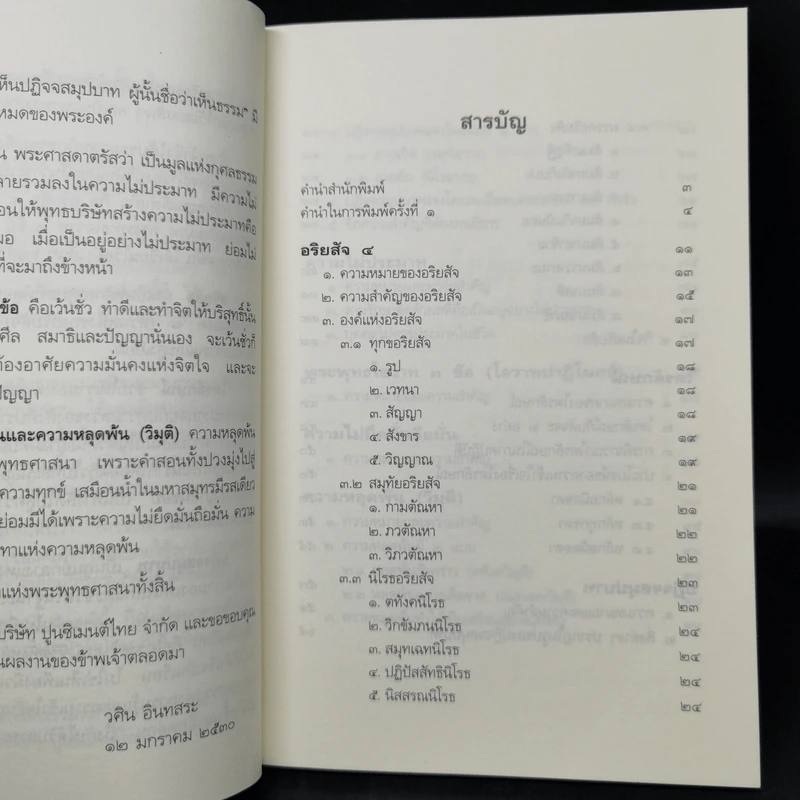 ห็นปฏิจจสมุปบาท ผู้นั้นชื่อว่าเห็นธรรม" มี
หมดของพระองค์
น พระศาสดาตรัสว่า เป็นมูลแห่งกุศลธรรม
ลายรวมลงในความไม่ประมาท มีความไม่
อนให้พุทธบริษัทสร้างความไม่ประมาทคือ
มอ เมื่อเป็นอยู่อย่างไม่ประมาท ย่อมไม่
ที่จะมาถึงข้างหน้า
ข้อ คือเว้นชั่ว ทำดีและทำจิตให้บริสุทธิ์นั้น
ศีล สมาธิและปัญญานั่นเอง จะเว้นชั่วก็
ต้องอาศัยความมั่นคงแห่งจิตใจ และจะ
ปัญญา
นและความหลุดพ้น (วิมุติ) ความหลุดพ้น
พุทธศาสนา เพราะคำสอนทั้งปวงมุ่งไปสู่
ความทุกข์ เสมือนน้ำในมหาสมุทรมีรสเดียว
ย่อมมีได้เพราะความไม่ยึดมั่นถือมั่น ความ
ทาแห่งความหลุดพ้น
แห่งพระพุทธศาสนาทั้งสิ้น
บริษัท ปูนซิเมนต์ไทย จำกัด และขอขอบคุณ
นผลงานของข้าพเจ้าตลอดมา
วศิน อินทสระ
๑๒ มกราคม ๒๕๓๐
สารบัญ
คำนำสำนักพิมพ์ ๓
คำนำในการพิมพ์ครั้งที่ ๑ ๔
อริยสัจ ๔ ๑๑
๑. ความหมายของอริยสัจ ๑๓
๒. ความสำคัญของอริยสัจ ๑๕
๓. องค์แห่งอริยสัจ ๑๗
๓.๑ ทุกขอริยสัจ ๑๗
๑. รูป ๑๘
๒. เวทนา ๑๘
๓. สัญญา ๑๘
๔. สังขาร ๑๙
๕. วิญญาณ ๑๙
๓.๒ สมุทัยอริยสัจ ๒๑
๑. กามตัณหา ๒๑
๒. ภวตัณหา ๒๒
๓. วิภวตัณหา ๒๒
๓.๓ นิโรธอริยสัจ ๒๓
๑. ตทังคนิโรธ ๒๓
๒. วิกขัมภนนิโรธ ๒๔
๓. สมุทเฉทนิโรธ ๒๔
๔. ปฏิปัสสัทธินิโรธ ๒๔
๕. นิสสรณนิโรธ ๒๔